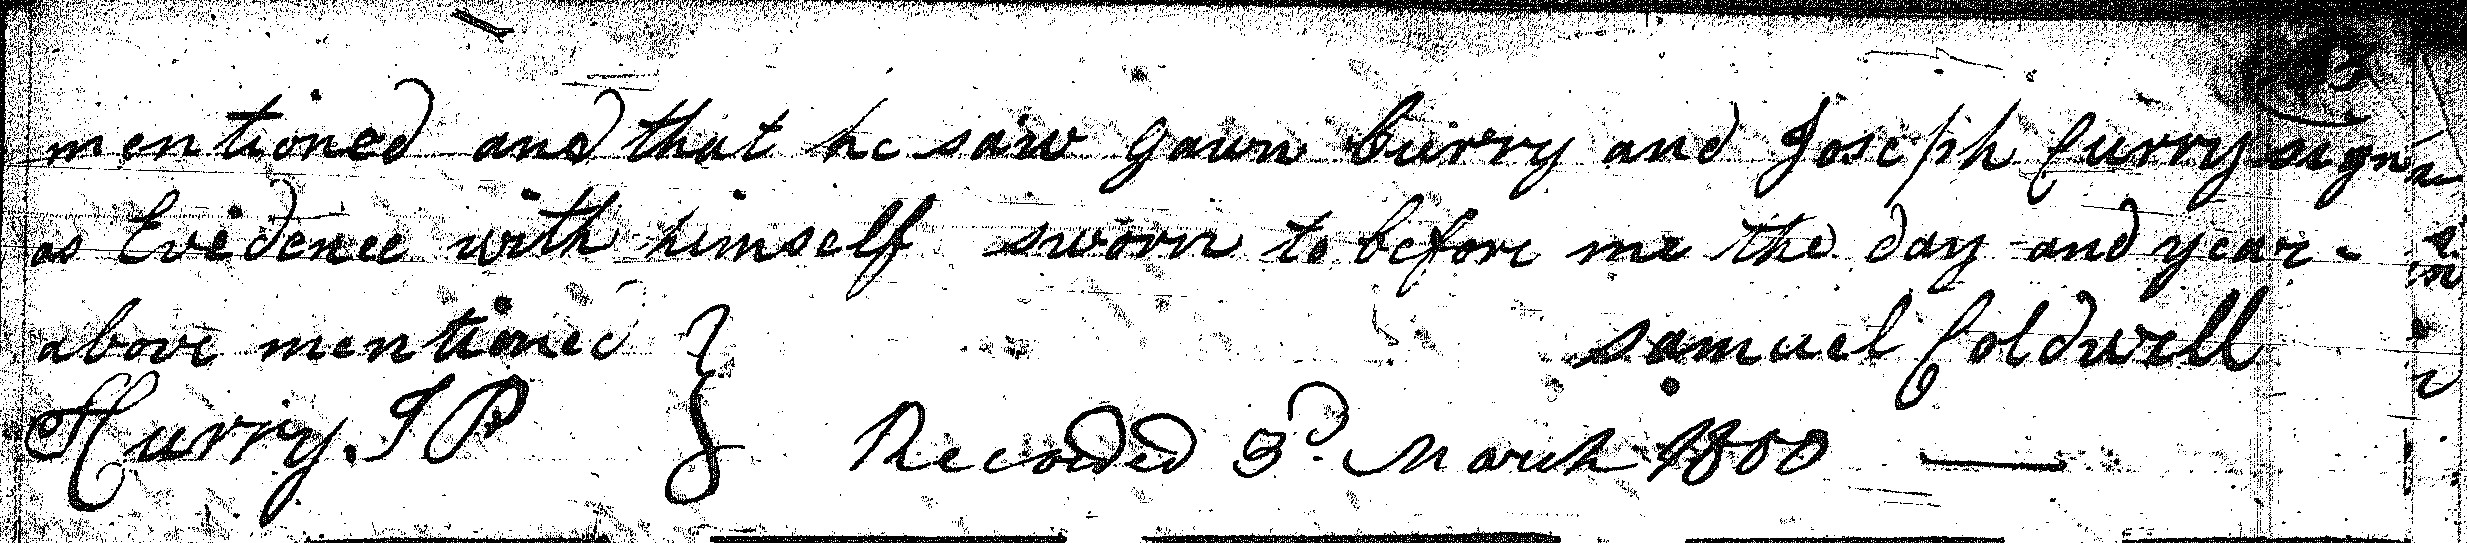 mentioned and that he saw Gawn Curry and Joseph Curry sign
as Evidence with himself sworn to before me the day and year
above mentioned } Samuel Coldwell
Curry. J P Recorded 3d. March 1800